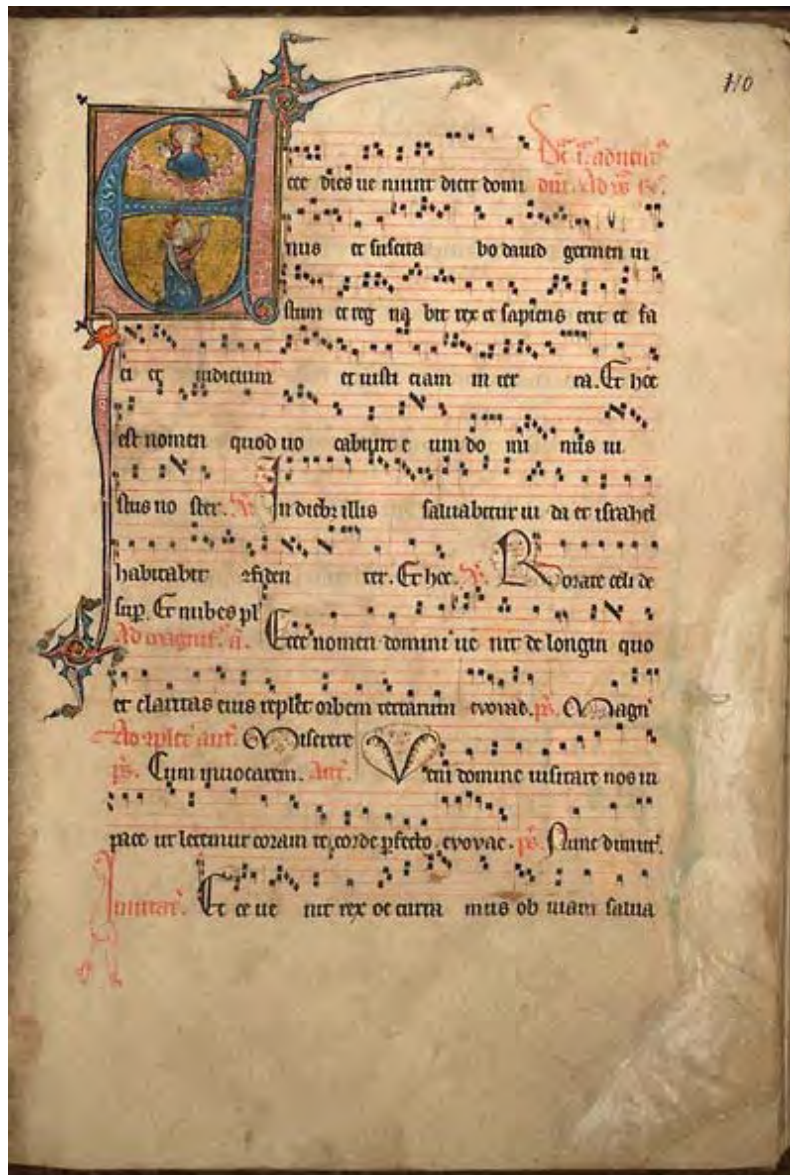 110
Dñica i. aduentus
cce dies ue niunt dicit domi dñi. Ad vs R.
nus et suscita bo dauid germen iu
stum et reg nabit rex et sapiens erit et fa
ci et iudicium et iusti ciam in ter ra. Et hec
est nomen quod uo cabunt e um do mi nus iu
stus no ster. V. In diebz illis saluabitur iu da et israhel
habitabit 9fiden ter. Et hec. V. Rorate celi de
sup. Et nubes pl'
Ad magnif. a. Ecce nomen domini ue nit de longin quo
et claritas eius replet orbem terrarum evovae. ps. Magn'
Ad 9plet ant. Miserere
ps. Cum inuocarem. Ant. Ueni domine uisitare nos in
pace ut letemur coram te corde pfecto evovae. ps. Nunc dimitt'.
Inuitat'. Ec ce ue nit rex oc curra mus ob uiam salua